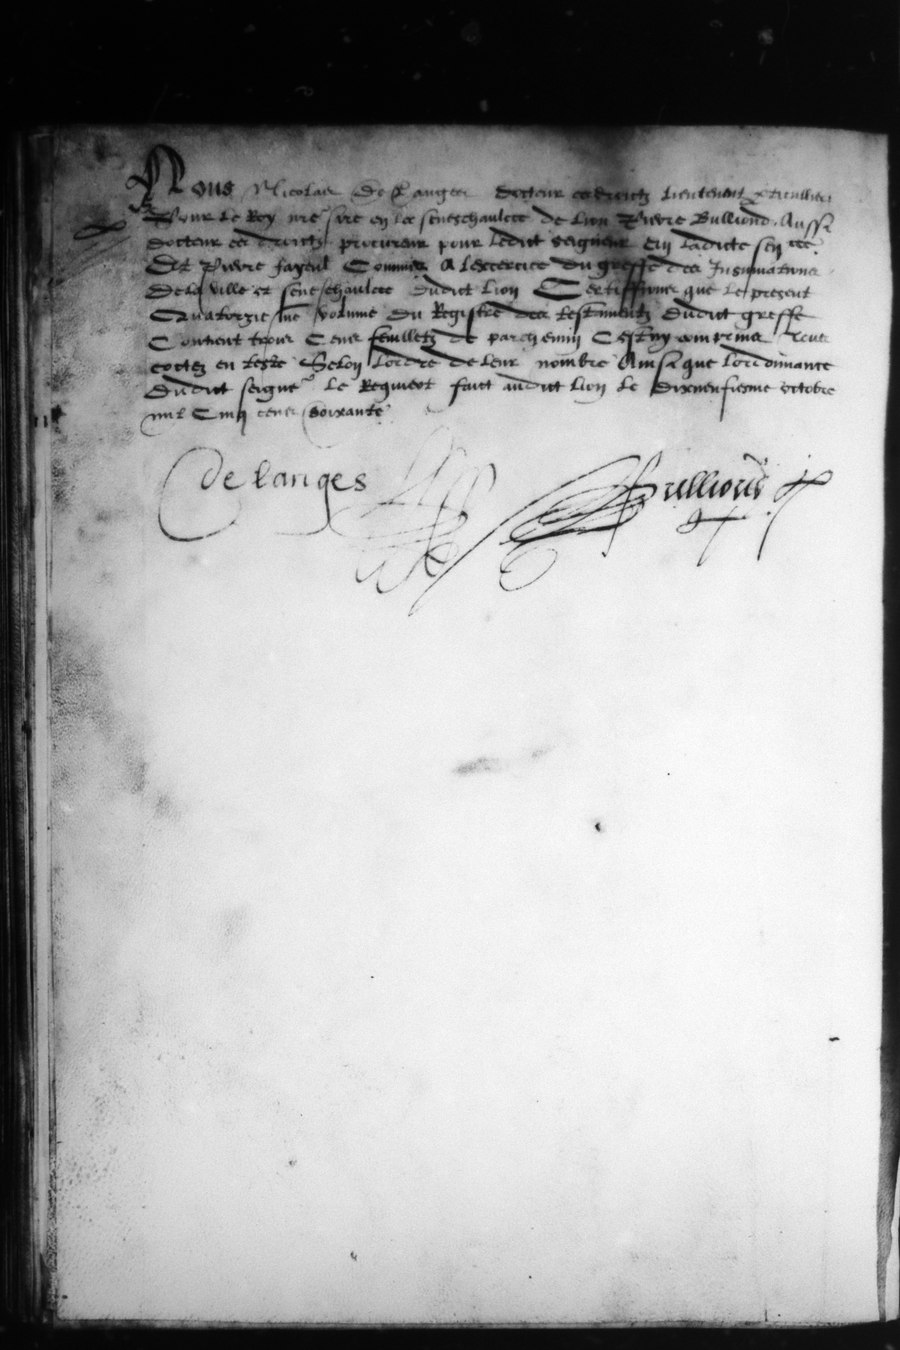 Nous Nicolas De Langes docteur es droictz Lieutenant particullier
Pour Le Roy nre sire en la seneschaulcee de Lion Pierre Bulliond Aussi
docteur es droictz procureur pour Ledict seigneur En Ladicte sen cee
Et Pierre fayeul Commis A Lexercice Du greffe des Insinuations
De La ville et seneschaulcee dudict Lion Certiffions que Le present
Quatorziesme volume Du Registre des testamentz dudict greffe
Contient trois Cens feuilletz de parchemin Cestuy comprins
cottez en teste Selon Lordre de Leur nombre Ainsi que Lordonnance
Dudict seigneur Le Requiert faict audict Lion Le Dixneufiesme octobre
mil Cinq cens soixante
De Langes Bulliond